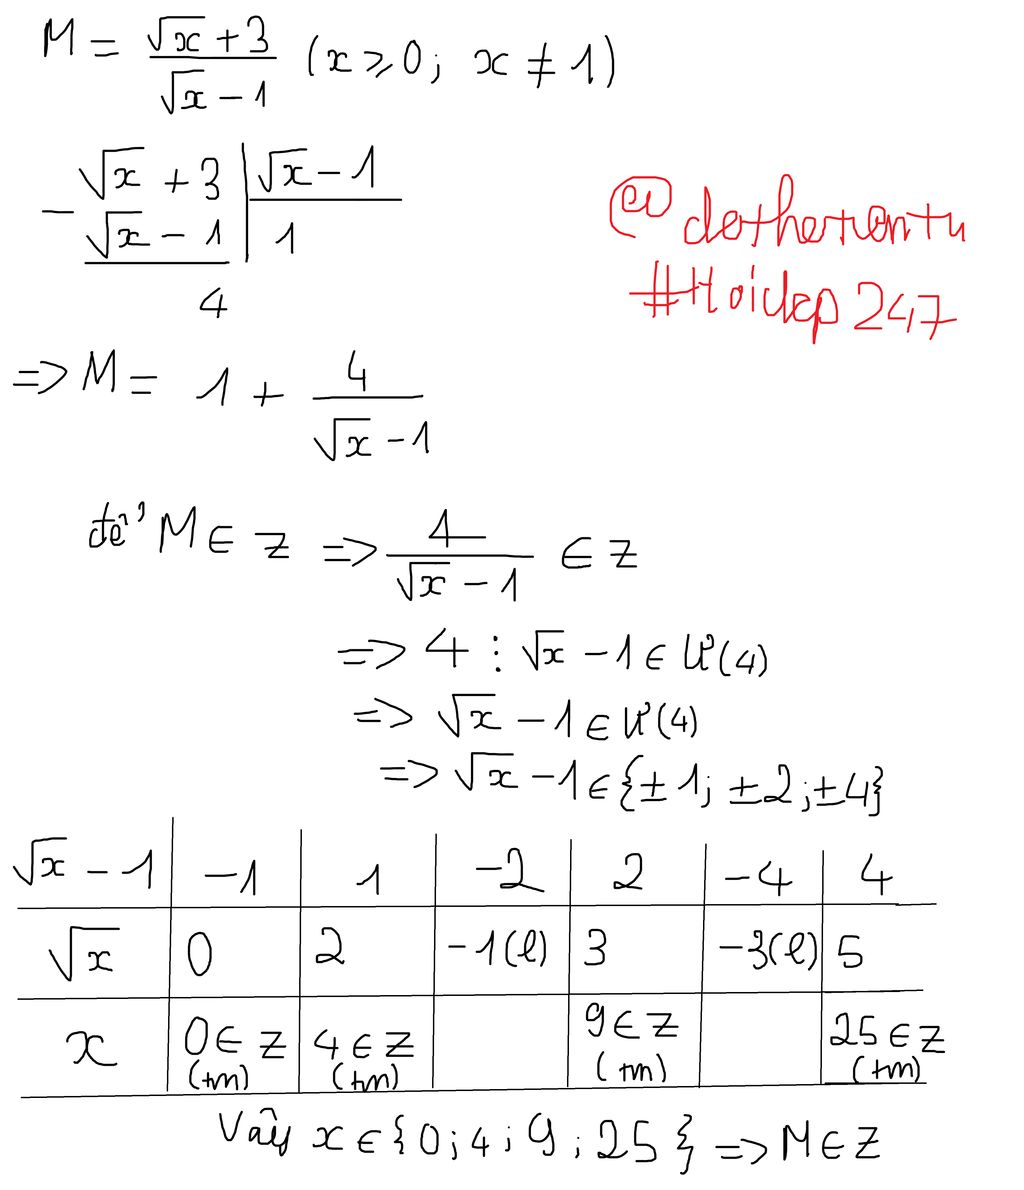 M = (√x + 3)/(√x − 1) (x ⩾ 0; x ≠ 1)
√x + 3 | √x − 1
− √x − 1 | 1
4
@dotherontu
#Hoidap247
=> M = 1 + 4/(√x − 1)
để M ∈ Z => 4/(√x − 1) ∈ Z
=> 4 ⋮ √x − 1 ∈ Ư(4)
=> √x − 1 ∈ Ư(4)
=> √x − 1 ∈ {±1; ±2; ±4}
√x − 1 | −1 | 1 | −2 | 2 | −4 | 4
√x | 0 | 2 | −1(l) | 3 | −3(l) | 5
x | 0 ∈ Z (tm) | 4 ∈ Z (tm) | | 9 ∈ Z (tm) | | 25 ∈ Z (tm)
Vậy x ∈ {0; 4; 9; 25} => M ∈ Z